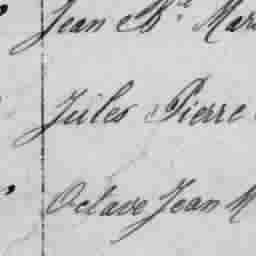 Jean Bte Mar
Jules Pierre
Octave Jean M